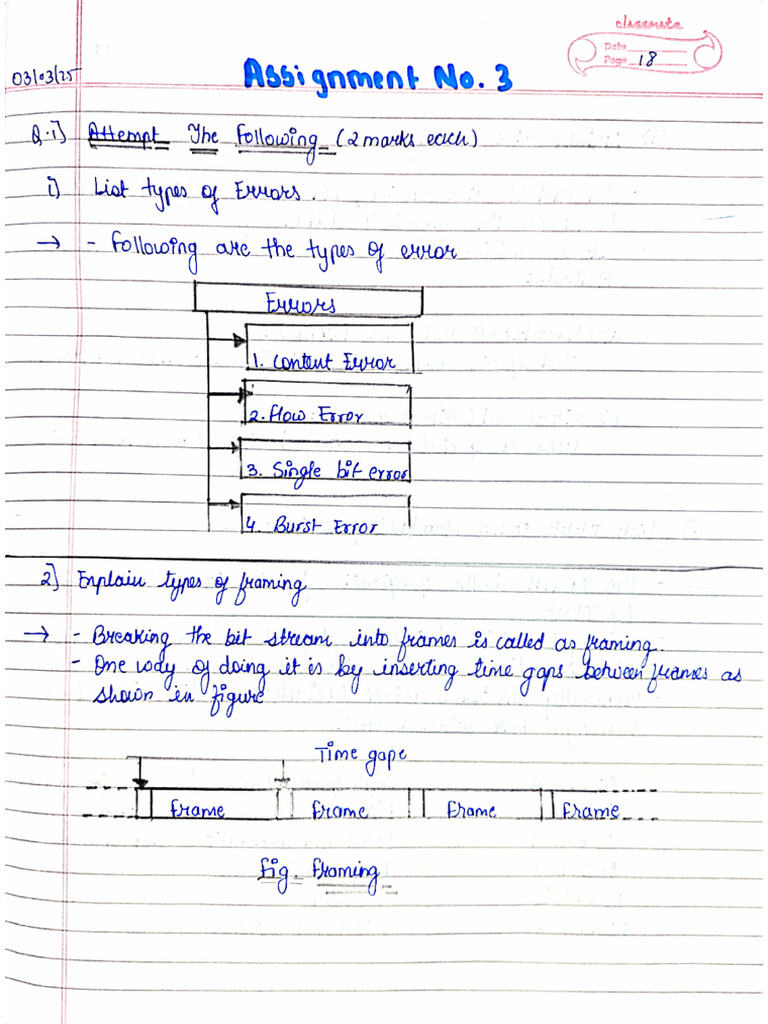 classmate
Date
Page 18
03/03/25
Assignment No. 3
Q.1) Attempt The Following (2 marks each)
i) List types of Errors.
→ - Following are the types of error
Errors
1. Content Error
2. Flow Error
3. Single bit error
4. Burst Error
2] Explain types of framing
→ - Breaking the bit stream into frames is called as framing.
- One way of doing it is by inserting time gaps between frames as
shown in figure
Time gape
frame frame frame frame
fig. framing